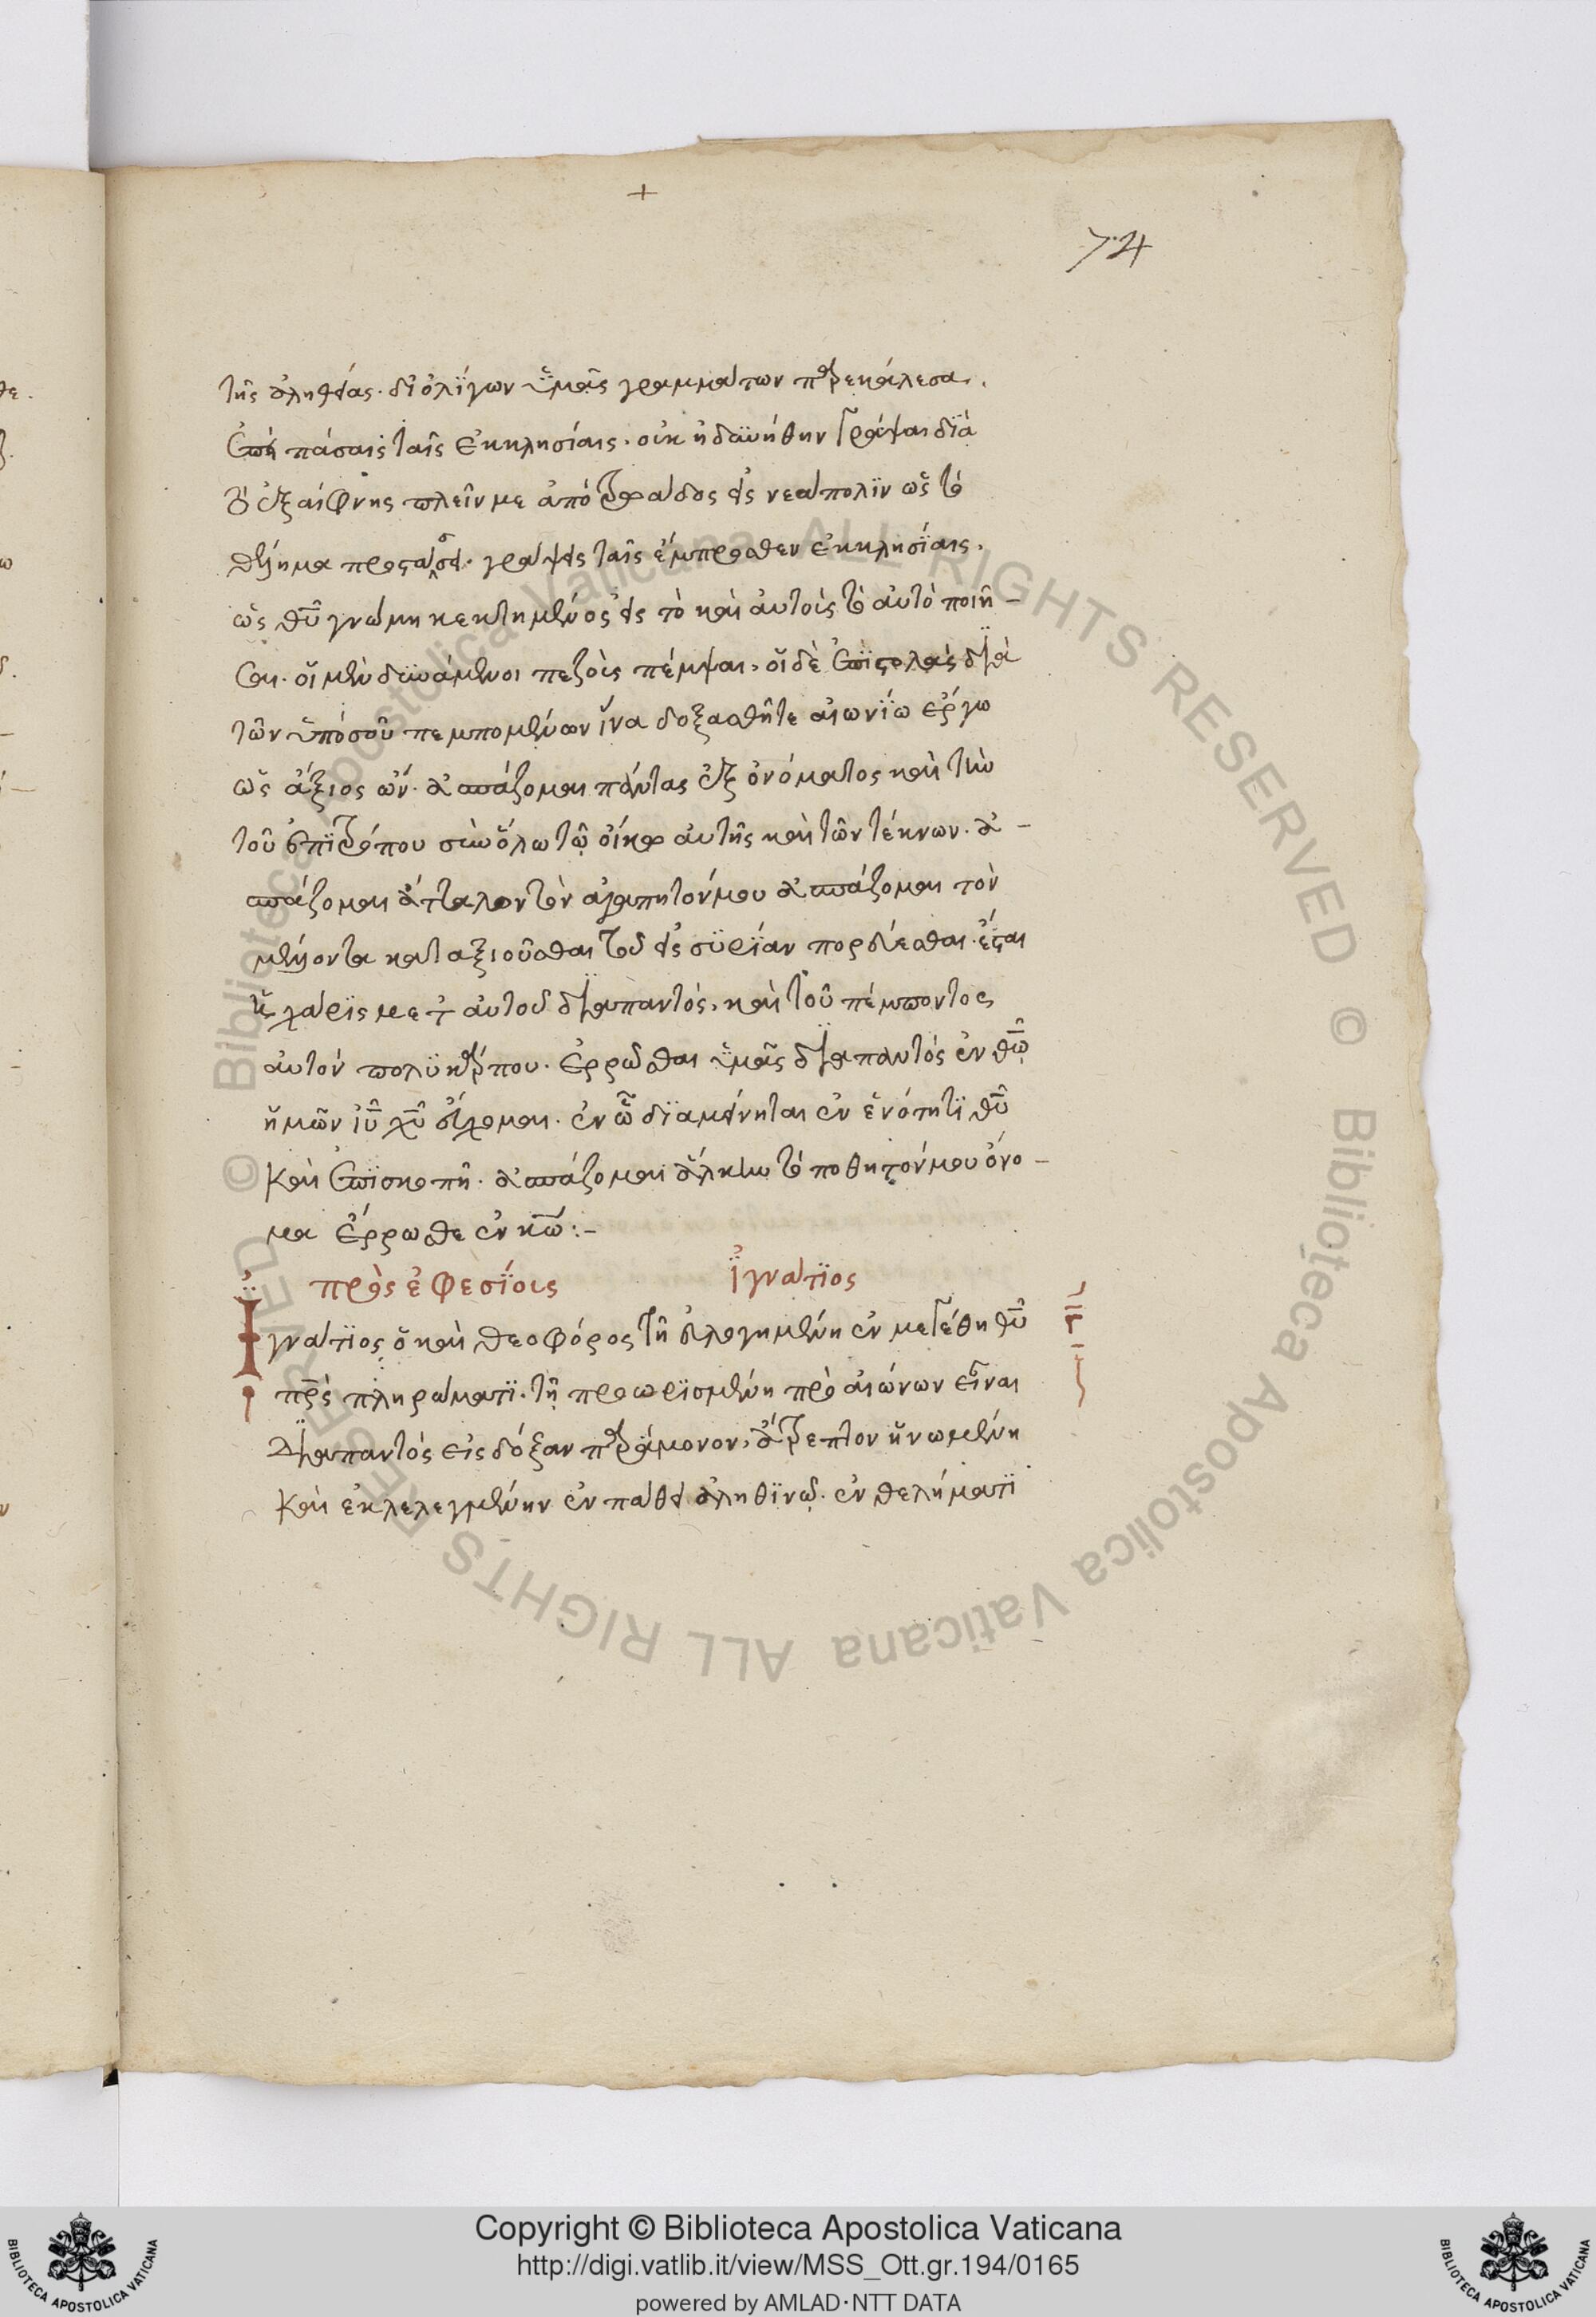 +
74
τῆς ἀληθείας· δι' ὀλΐγων ὑμᾶς γραμμάτων παρεκάλεσα.
ἐπεὶ πάσαις ταῖς ἐκκλησίαις· οὐκ ἠδυνήθην γράψαι διὰ
τὸ ἐξαίφνης πλεῖν με ἀπὸ τρωάδος εἰς νεάπολϊν ὡς τὸ
θέλημα προστάσσει· γράψεις ταῖς ἔμπροσθεν ἐκκλησΐαις.
ὡς θῡ γνώμη κεκτημένος εἰς τὸ καὶ αὐτοὺς τὸ αὐτὸ ποιῆ-
σαι. οἱ μὲν δυνάμενοι πεζοὺς πέμψαι, οἱ δὲ ἐπϊστολὰς διὰ
τῶν ὑπό σου πεμπομένων ἵνα δοξασθῆτε αἰωνΐω ἔργω
ὡς ἄξιος ὤν. ἀσπάζομαι πάντας ἐξ ὀνόματος καὶ τὴν
τοῦ ἐπιτρόπου σὺν ὅλω τῷ οἴκω αὐτῆς καὶ τῶν τέκνων. ἀ-
σπάζομαι ἄτταλον τὸν ἀγαπητόν μου ἀσπάζομαι τὸν
μέλλοντα καταξιοῦσθαι τοῦ εἰς συρΐαν πορεύεσθαι. ἔσται
ἡ χάρϊς μετ' αὐτοῦ διαπαντός, καὶ τοῦ πέμποντος
αὐτὸν πολυκάρπου. ἐρρῶσθαι ὑμᾶς διαπαντός ἐν θῶ
ἡμῶν ἰῡ χῡ εὔχομαι. ἐν ὧ δϊαμείνηται ἐν ἑνότητϊ θῡ
καὶ ἐπϊσκοπῆ. ἀσπάζομαι ἄλκην τὸ ποθητόν μου ὄνο-
μα ἔρρωσθε ἐν κῶ:-
πρὸς ἐφεσΐους ἰγνάτϊος
Ιγνάτϊος ὁ καὶ θεοφόρος τῆ εὐλογημένη ἐν μεγέθη θῡ
πρ̅ς πληρώματϊ. τῆ προωρϊσμένη πρὸ αἰώνων εἶναι
διαπαντὸς εἰς δόξαν παράμονον, ἄτρεπτον ἡνωμένη
καὶ ἐκλελεγμένην ἐν πάθει ἀληθϊνῶ. ἐν θελήματϊ
Copyright © Biblioteca Apostolica Vaticana
http://digi.vatlib.it/view/MSS_Ott.gr.194/0165
powered by AMLAD·NTT DATA
BIBLIOTECA APOSTOLICA VATICANA
BIBLIOTECA APOSTOLICA VATICANA
© Biblioteca Apostolica Vaticana ALL RIGHTS RESERVED © Biblioteca Apostolica Vaticana ALL RIGHTS RESERVED